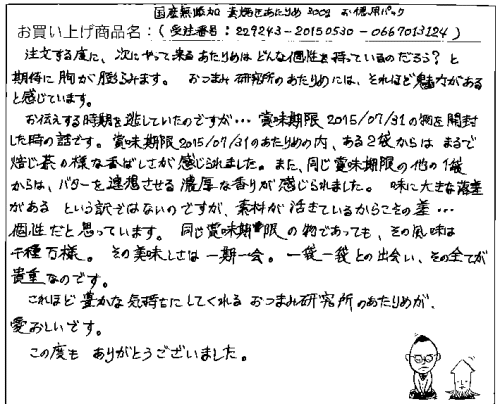 国産無添加 素焼きあたりめ 200g お徳用パック
お買い上げ商品名：（受注番号：229243-20150530-0667013124）
注文する度に、次にやって来るあたりめはどんな個性を持っているのだろう？と
期待に胸が膨らみます。おつまみ研究所のあたりめには、それほど魅力がある
と感じています。
お伝えする時期を逃していたのですが…賞味期限2015/07/31の物を開封
した時の話です。賞味期限2015/07/31のあたりめの内、ある2袋からは まるで
焙じ茶の様な香ばしさが感じられました。また、同じ賞味期限の他の1袋
からは、バターを連想させる濃厚な香りが感じられました。味に大きな落差
がある という訳ではないのですが、素材が活きているからこその差…
個性だと思っています。同じ賞味期限の物であっても、その風味は
千種万様。その美味しさは一期一会。一袋一袋との出会い、その全てが
貴重なのです。
これほど豊かな気持ちにしてくれる おつまみ研究所のあたりめが、
愛おしいです。
この度も ありがとうございました。